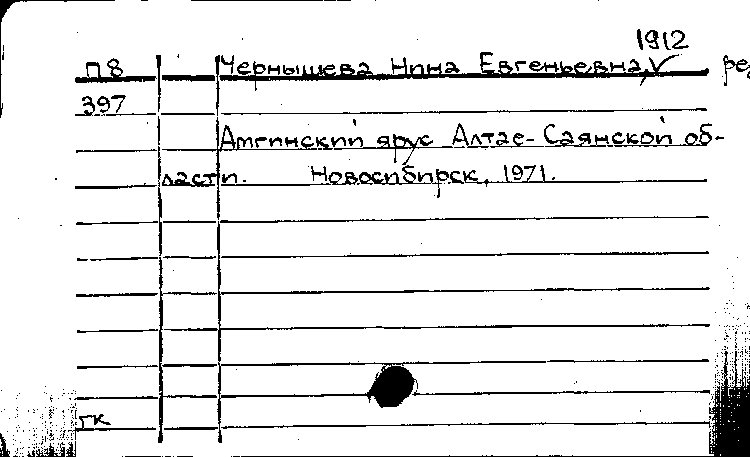 1912
П8 Чернышева Нина Евгеньевна, ре
397
Амгинский ярус Алтае-Саянской об-
ласти. Новосибирск, 1971.
гк